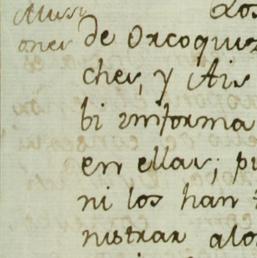 Missi
ones
Los
de Orcoquiz
ches, y Ais
bi informa
en ellas; pu
ni los han t
nistrar alo